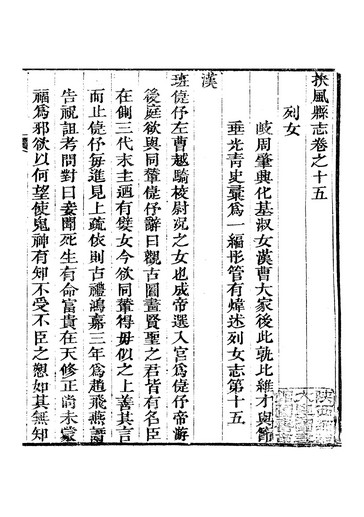 扶風縣志卷之十五
列女
岐周肇興化基淑女漢曹大家後此孰比維才與節
垂光青史彚爲一編彤管有煒述列女志第十五
漢
班倢伃左曹越騎校尉況之女也成帝選入宫爲倢伃帝游
後庭欲與同輦倢伃辭曰觀古圖畫賢聖之君皆有名臣
在側三代末主迺有嬖女今欲同輦得毋似之上善其言
而止倢伃每進見上疏依則古禮鴻嘉三年爲趙飛燕譖
告祝詛考問對曰妾聞死生有命富貴在天修正尚未蒙
福爲邪欲以何望使鬼神有知不受不臣之愬如其無知